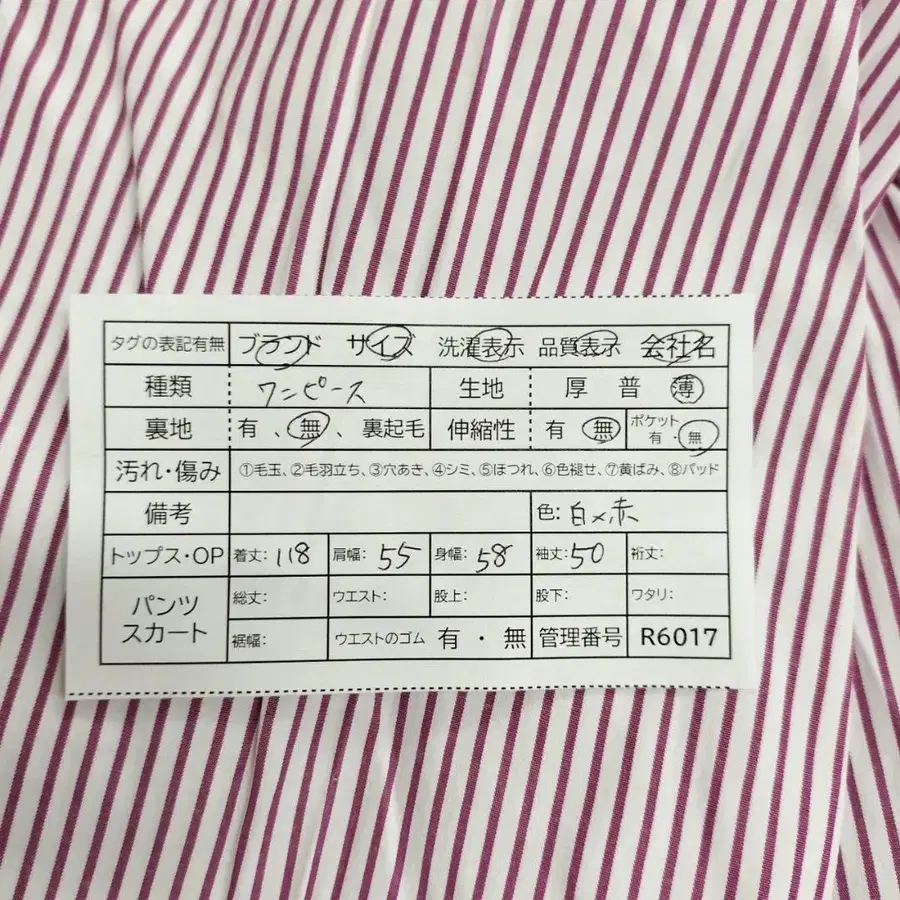 タグの表記有無 ブランド サイズ 洗濯表示 品質表示 会社名
種類 ワンピース 生地 厚 普 薄
裏地 有 、 無 、 裏起毛 伸縮性 有 無 ポケット 有・無
汚れ・傷み ①毛玉、②毛羽立ち、③穴あき、④シミ、⑤ほつれ、⑥色褪せ、⑦黄ばみ、⑧パッド
備考 色: 白×赤
トップス・OP 着丈: 118 肩幅: 55 身幅: 58 袖丈: 50 裄丈:
パンツ スカート 総丈: ウエスト: 股上: 股下: ワタリ:
裾幅: ウエストのゴム 有 ・ 無 管理番号 R6017